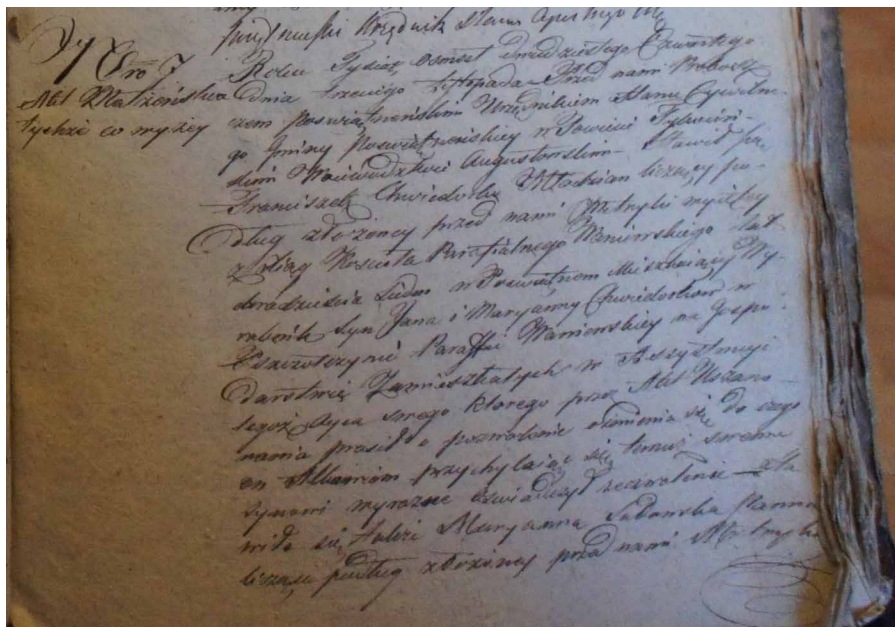 Urzędnik Stanu
Nro 7
Akt Małżeństwa
tychże co wyżey
Roku Tysiąc, osmset dwudziestego Czwartego
dnia trzeciego Listopada Przed nami Probosz-
czem Poswiątneńskim Urzędnikiem Stanu Cywilne-
go Gminy Poswiętneńskiey w Powiecie Tykociń-
skim Woiewodztwie Augustowskim Stawił się
Franciszek Chwiedorko Młodzian liczący po-
dług złożoney przed nami Metryki wyiętey
z Xiąg Koscioła Parafialnego Waniewskiego lat
dwadzieścia siedm w Poswiętnem Mieszkaiący Wy-
robnik Syn Jana i Maryanny Chwiedorkow w
Parafii Waniewskiey na Gospo-
darstwie Zamieszkałych w Assystencyi
tegoż Oyca swego ktorego przez Akt Uszano-
wania prosił o pozwolenie ożenienia się do czego
on przychylaiąc się temuż swemu
synowi wyrazne oswiadczył zezwolenie sta-
wiła się także Maryanna Sadowska Panna
licząca podług złożoney przed nami Metryki